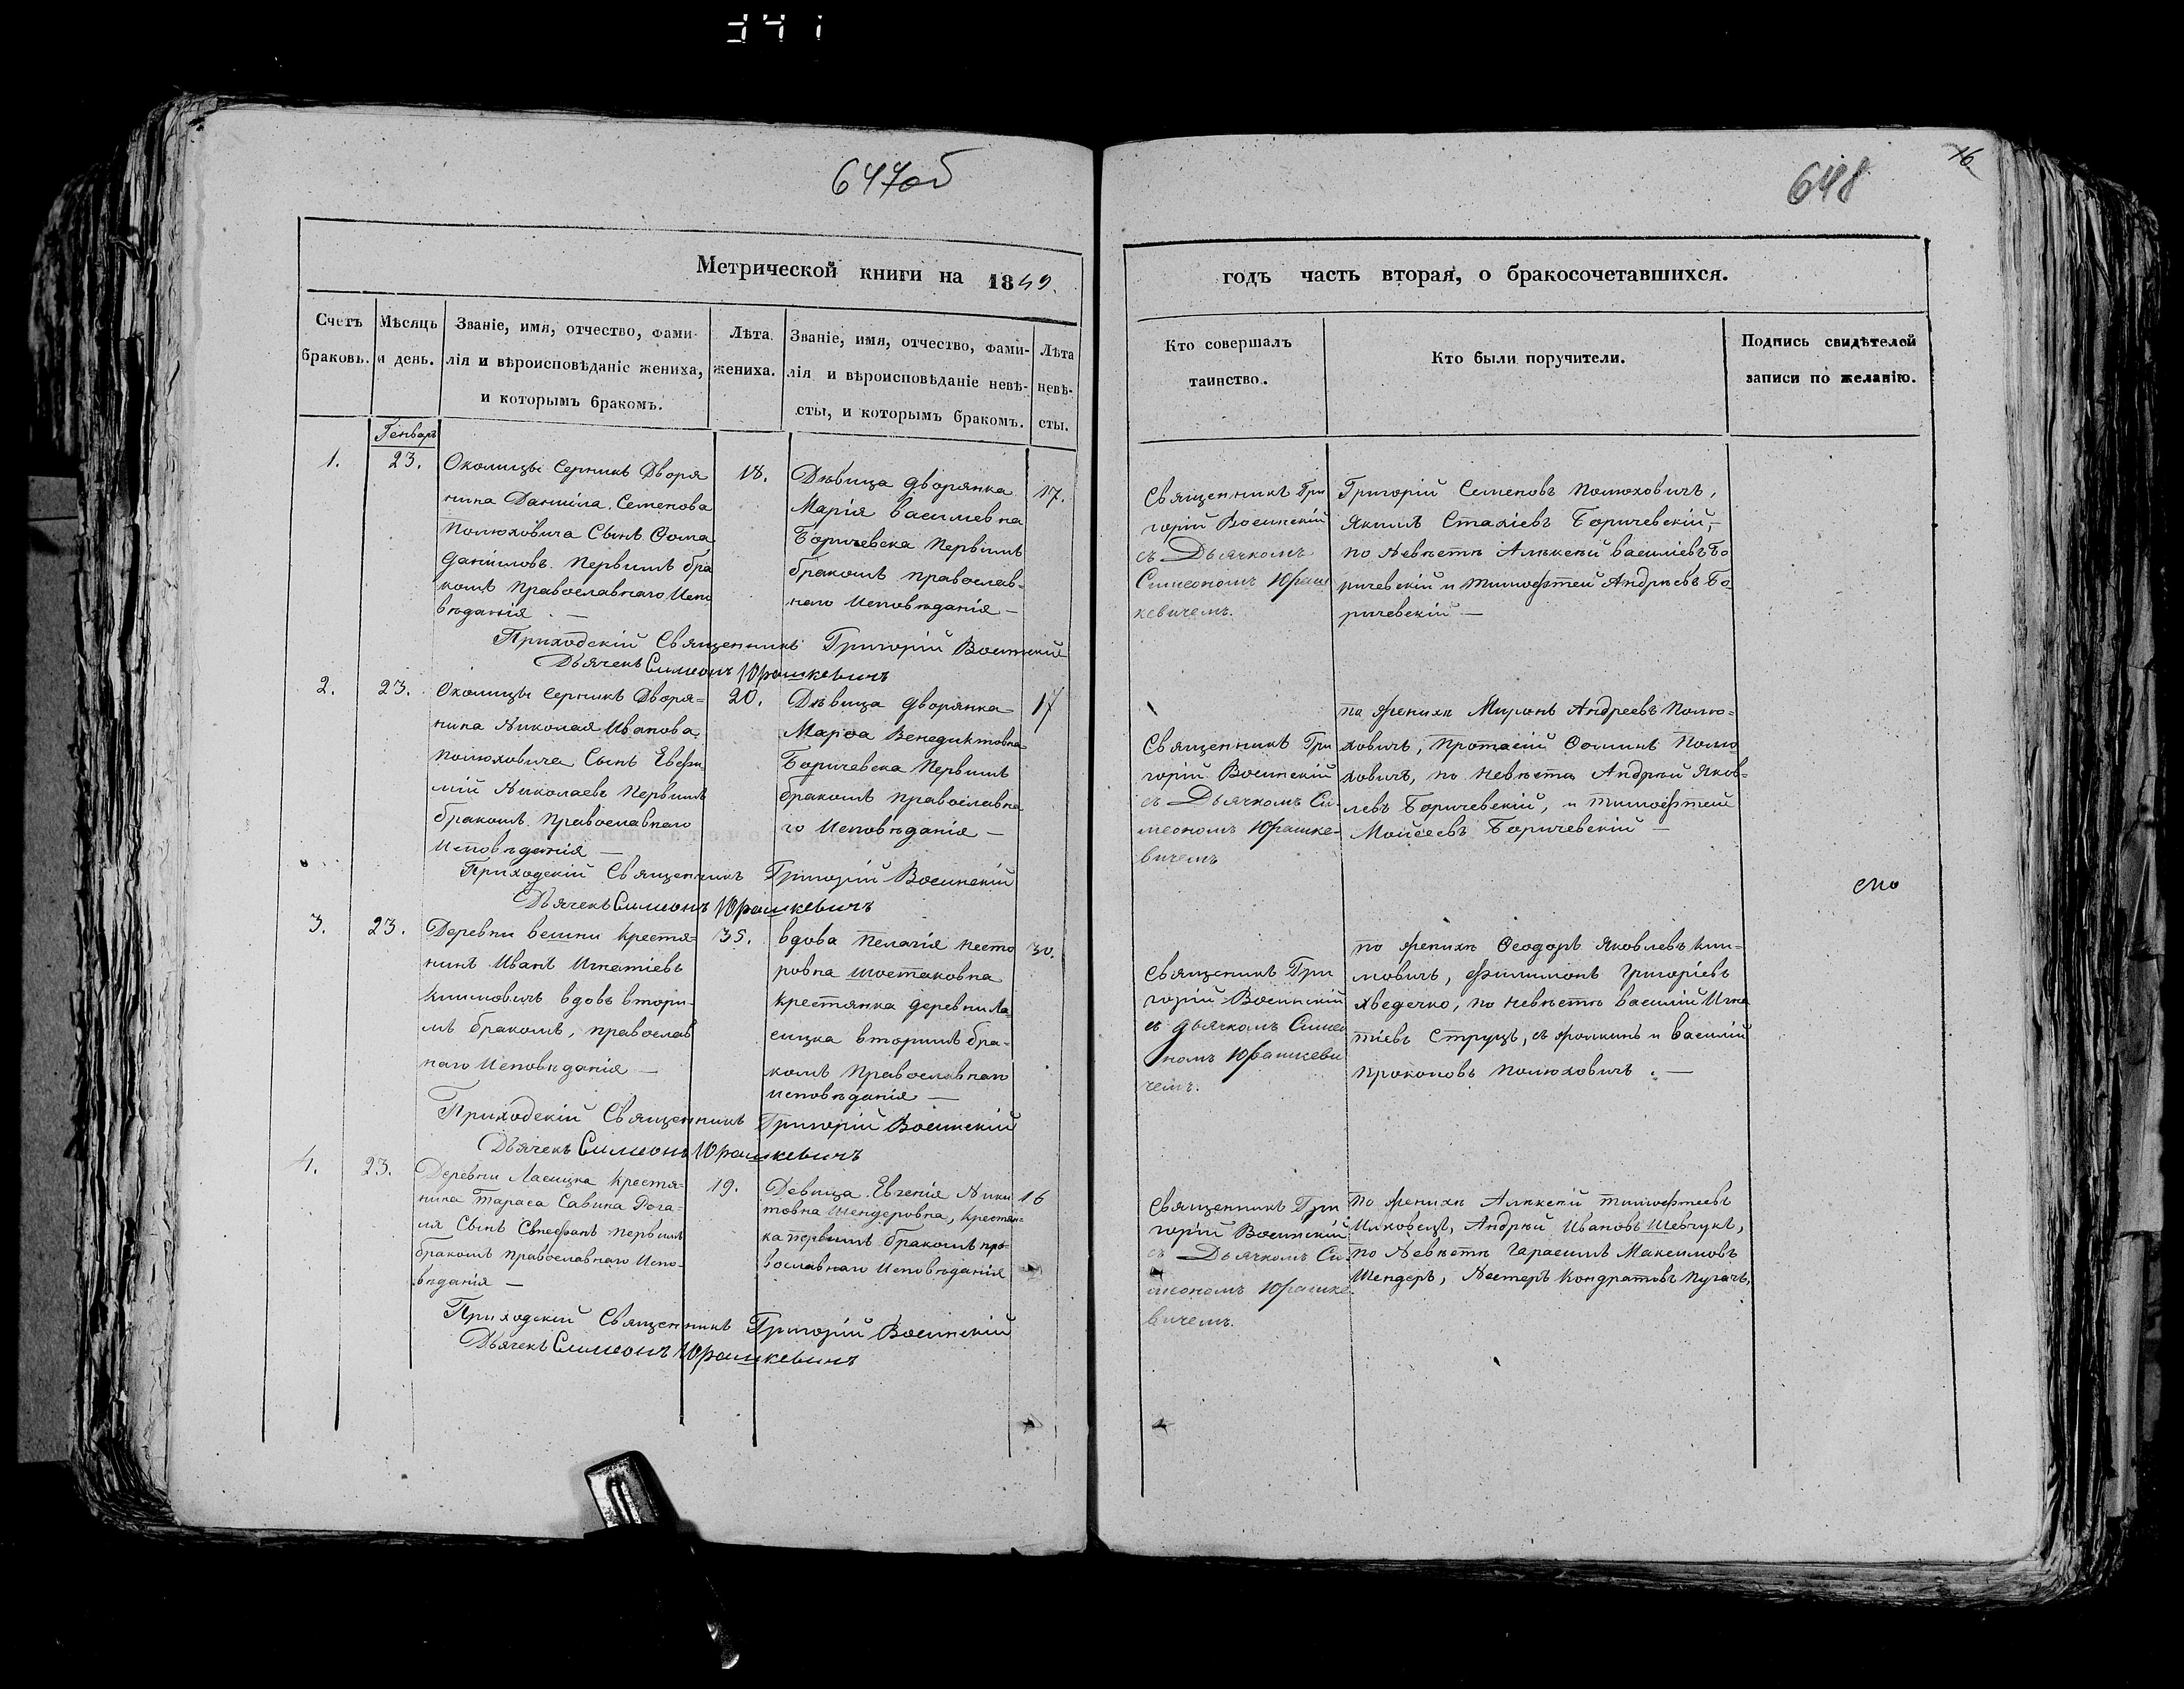 647об
648
16
Метрической книги на 1849.
годъ часть вторая, о бракосочетавшихся.
Счетъ браковъ.
Мѣсяцъ и день.
Званіе, имя, отчество, фами-
лія и вѣроисповѣданіе жениха,
и которымъ бракомъ.
Лѣта жениха.
Званіе, имя, отчество, фами-
лія и вѣроисповѣданіе невѣ-
сты, и которымъ бракомъ.
Лѣта невѣ-
сты.
Кто совершалъ
таинство.
Кто были поручители.
Подпись свидѣтелей
записи по желанію.
Генварь
1.
23.
Околицы Серникъ Дворя
нина Даніила Семенова
Полюховича Сынъ Ѳома
Даніиловъ Первымъ бра
комъ Православнаго Испо
вѣданія —
18.
Дѣвица дворянка
Марія Василевна
Боричевска Первымъ
бракомъ православ-
наго Исповѣданія —
17.
Священникъ Гри
горій Воеинскій
съ Дьячкомъ
Симеономъ Юраш
кевичемъ.
Григорій Семеновъ Полюховичъ,
Якимъ Стахіевъ Боричевскій,
по Невѣстѣ Алѣксѣй Василіевъ Бо
ричевскій и Тимофтей Андрѣевъ Бо
ричевскій —
Приходскій Священникъ Григорій Воеинскій
Дьячекъ Симеонъ Юрашкевичъ
2.
23.
Околицы Серникъ Дворя-
нина Николая Иванова
Полюховича Сынъ Евфи
мій Николаевъ Первымъ
бракомъ Православнаго
Исповѣданія —
20.
Дѣвица дворянка
Марѳа Венедиктовна
Боричевска Первымъ
бракомъ Православна
го Исповѣданія —
17
Священникъ Гри
горій Воеинскій
съ Дьячкомъ Си-
меономъ Юрашке-
вичемъ
по женихѣ Миронъ Андреевъ Полю-
ховичъ, Протасій Ѳоминъ Полю
ховичъ, по Невѣстѣ Андрѣй Яков-
левъ Боричевскій, и Тимофтей
Мойсеевъ Боричевскій —
Приходскій Священникъ Григорій Воеинскій
Дьячекъ Симеонъ Юрашкевичъ
3.
23.
Деревни Вешни Крестя-
нинъ Иванъ Игнатіевъ
Климовичъ вдовъ втори-
мъ бракомъ, православ
наго Исповѣданія —
35.
вдова Пелагія Несто
ровна Шостаковна
крестянка деревни Ла-
сицка вторымъ бра-
комъ Православнаго
исповѣданія —
30.
Священникъ Гри
горій Воеинскій
съ дьячкомъ Симео
номъ Юрашкеви
чемъ.
по женихѣ Ѳеодоръ Яковлевъ Кли-
мовичъ, Филимонъ Григоріевъ
Хведечко, по Невѣстѣ Василій Игна
тіевъ Струцъ, и Василій
Прокоповъ Полюховичъ. —
Приходскій Священникъ Григорій Воеинскій
Дьячекъ Симеонъ Юрашкевичъ
4.
23.
Деревни Ласицка Крестя-
нина Тараса Савина Рога-
ля Сынъ Стефанъ первымъ
бракомъ православнаго Испо-
вѣданія —
19.
Девица Евгенія Ники
товна Шендеровна, крестян-
ка первымъ бракомъ пра-
вославнаго Исповѣданія
16
Священникъ Гри
горій Воеинскій
съ Дьячкомъ Си-
меономъ Юрашке-
вичемъ.
По женихѣ Алѣксѣй Тимофтеевъ
Ильковецъ, Андрѣй Ивановъ Шевчукъ,
по Невѣстѣ Гарасимъ Максимовъ
Шендеръ, Нестеръ Кондратовъ Пугачъ,
Приходскій Священникъ Григорій Воеинскій
Дьячекъ Симеонъ Юрашкевичъ